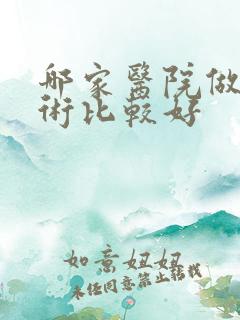 哪家醫院做
術比較好
如意妞妞
未任同意禁止轉載